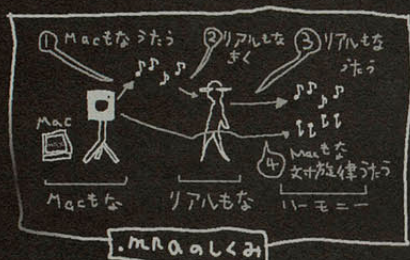 ① Macもな うたう
② リアルもな
きく
③ リアルもな
うたう
Mac
④
Macもな
対旋律うたう
Macもな
リアルもな
ハーモニー
.mnaのしくみ